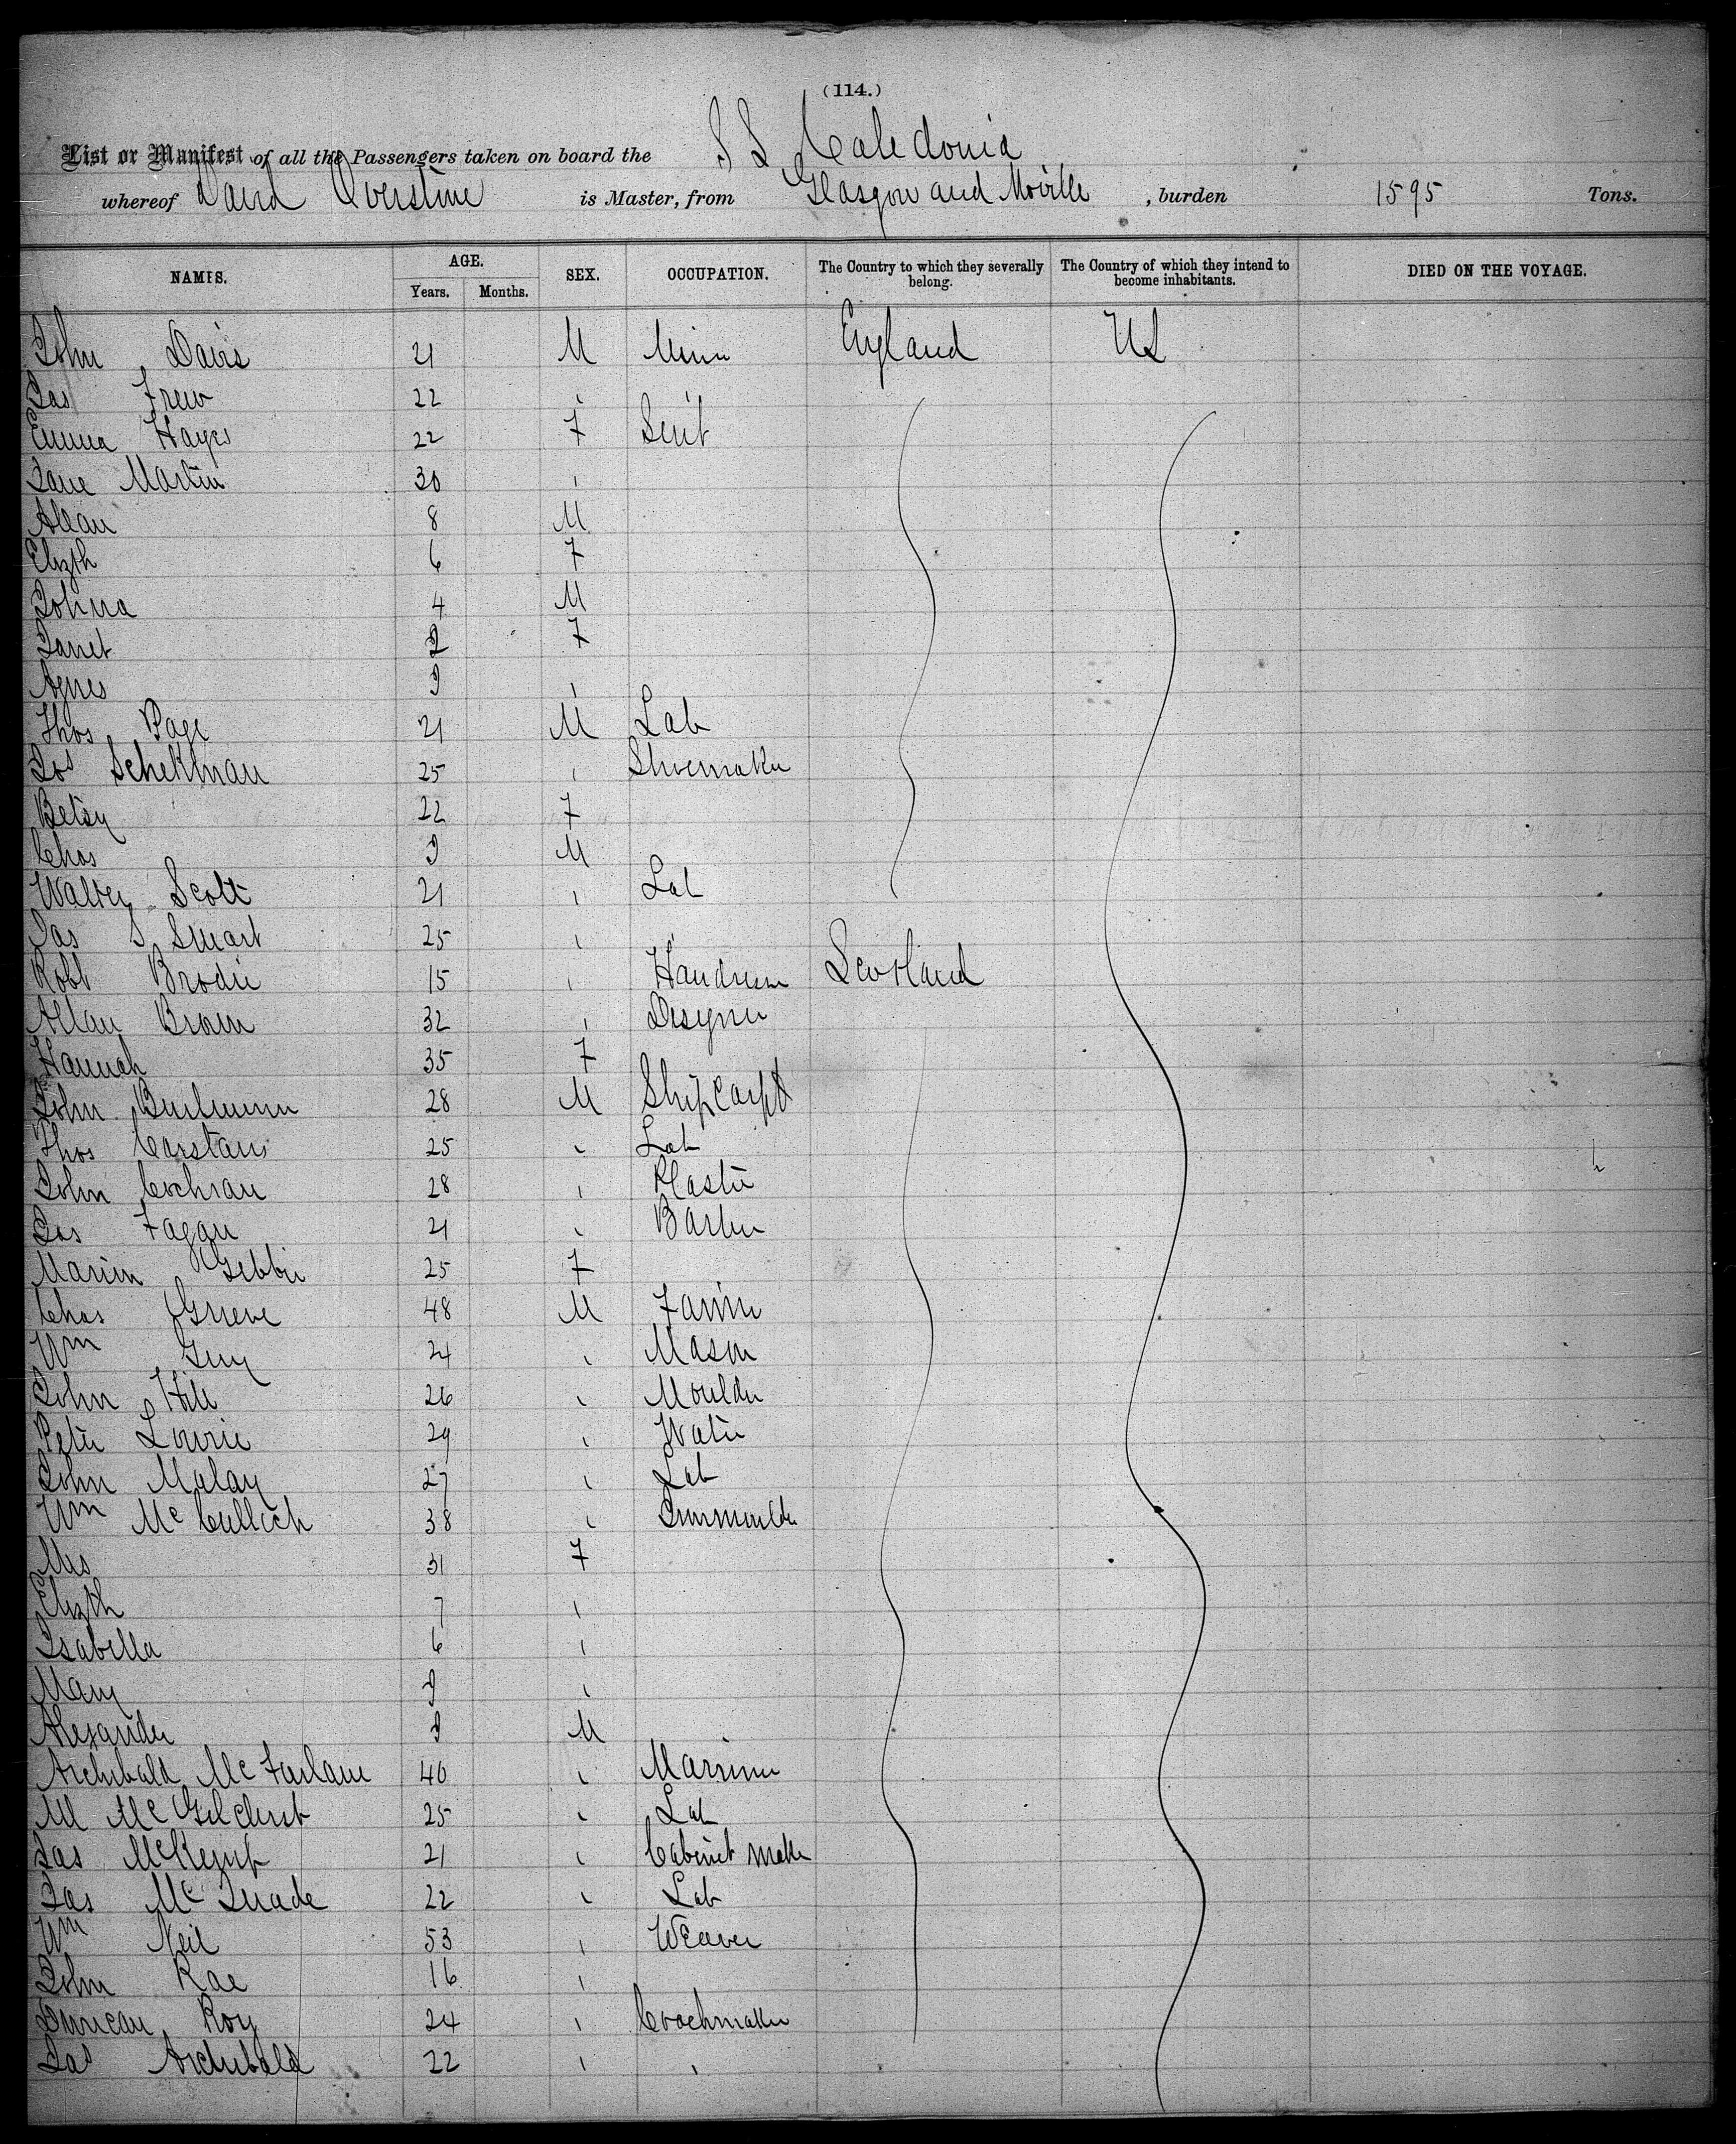 (114.)
List or Manifest of all the Passengers taken on board the S S Caledonia
whereof David Overstine is Master, from Glasgow and Moville , burden 1595 Tons.
NAMES. AGE. SEX. OCCUPATION. The Country to which they severally belong. The Country of which they intend to become inhabitants. DIED ON THE VOYAGE.
Years. Months.
John Davis 21 M Miner England US
Jas Frew 22 " "
Emma Hayes 22 F Servt
Jane Martin 30 "
Allan 8 M
Elizth 6 F
Johna 4 M
Janet 2 F
Agnes "
Thos Page 21 M Lab
Jos Schekman 25 " Shoemaker
Betsy 22 F
Chas M
Walter Scott 21 " Lab
Jas S Smart 25 " "
Robt Brodie 15 " Scotland
Allan Brown 32 " Designer
Hannah 35 F
John 28 M Ship Carpt
Thos Carstairs 25 " Lab
John Cochran 28 " Plaster
Jas Fagan 21 " Barber
Marion Gebbie 25 F
Chas Grieve 48 M Farmer
Wm Guy 24 " Mason
John Hill 26 " Moulder
Peter Lowrie 29 " Waiter
John Malay 27 " Lab
Wm McCulloch 38 " Ironmoulder
Mrs 31 F
Elizth 7 "
Isabella 6 "
Mary "
Alexander M
Archibald McFarlane 40 " Marriner
M McGilchrist 25 " Lab
Jas McKemp 21 " Cabinet Maker
Jas McQuade 22 " Lab
Wm Neil 53 " Weaver
John Rae 16 "
Duncan Roy 24 " Coachmaker
Jas Archibald 22 " "